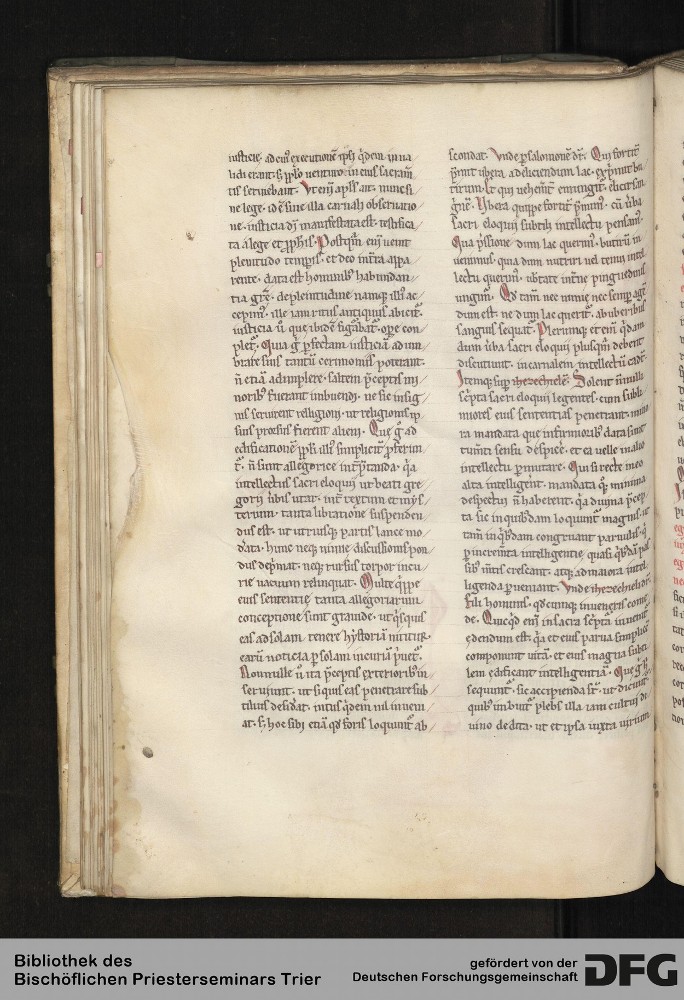 iusticie. ad cuius executionē ipsi q̇dem inua
lidi erant. s; ꝓ xp̄o uenturo in eius sacram̄
tis seruiebant. Vt enī apl̄s ait. nunc si
ne lege. id ē sine illa carnali obseruatio
ne. iusticia dī manifestata est. testifica
ta a lege et ꝓph̄is. Postqm̄ enī uenit
plenitudo temꝑis. et deo int̄ra appa
rente. data est hominib; habundan
tia gr̄e. de plenitudine namq; illi ac
cepim̄. ille iam ritus antiquus abiecit̄.
iusticia ū que ibide figabat̄. oꝑe con
plet̄. Quia g̊ ꝑfectam iusticiā adum
brare suis tantū cerimoniis poterant.
n̄ etiā adimplere. saltem p̄ceptis mi
norib; fuerant imbuendi. ne sic insig
nis seruirent religioni. ut religionis ip
sius prorsus fierent alieni. Que g̊ ad
edificationē pp̄li illi simpliciter ꝓferun
t̄. n̄ sunt allegorice int̄p̄tanda. q̇a
intellectus sacri eloquii ut beati gre
gorii ūbis utar. int̄ textum et mys
terium. tanta libratione suspenden
dus est. ut utriusq; partis lance mo
d̄ata. hunc neq; nimie discussionis pon
dus dep̄mat. neq; rursus torpor incu
rie uacuum relinquat. Multe q̇ppe
eius sententie tanta allegoriarum
conceptione sunt grauide. ut q̇squis
eas ad solam tenere hystoriā nitit̄ur.
earū noticia ꝑ solam incuriā p̄uet̄.
Nonnulle ū ita p̄ceptis exteriorib; in
seruiunt. ut si quis eas penetrare sub
tilius desid̄at. intus q̇dem nil inueni
at. s; hoc sibi etiā qd̄ foris loquunt̄ ab
scondat. Vnde ꝑ salomonē dr̄. Qui fortit̄
p̄mit ubera. ad eliciendum lac. exp̄mit bu
tirum. et qui uehem̄t emungit̄. elicit san
gūē. Vbera quippe fortit̄ p̄mim̄. cū ūba
sacri eloquii subtili intellectu pensam̄.
Qua p̄ssione dum lac querim̄. butirū in
uenimus. quia dum nutriri ūl tenui intel
lectu querim̄. ub̄tate int̄ne pinguedinis
ungim̄. Qd̄ tam̄ nec nimie nec semp̄ agen
dum est. ne dum lac querit̄. ab uberibus
sanguis sequat̄. Plerumq; et enī q̇dam
dum ūba sacri eloquii plusqm̄ debent
discutiunt. in carnalem intellectū cadt̄.
Itemq; sup̄ ihezechielē. Solent nnulli
sc̄pta sacri eloquii legentes. cum subli
miores eius sententias penetrant. mino
ra mandata que infirmiorib; data sunt
tum̄ti sensu despice. et ea uelle in alio
intellectu ꝑmutare. Qui si recte in eo
alta intelligent̄. mandata q; minima
despectui n̄ haberent. q̇a diuina p̄cep
ta sic in quib;dam loquunt̄ magnis. ut
tam̄ in q̇b;dam congruant paruulis. q̇
ꝑ incrementa intelligentie quasi q̇b;dā pas
sib; mentis crescant. atq; ad maiora intel
ligenda ꝑueniant. Vnde ihezechieli dr̄.
Fili hominis. qd̄cumq; inueneris come
de. Quicq̇d enī in sacra sc̄pta inuenit̄
edendum est. q̇a et eius parua simplicē
componunt uitā. et eius magna subti
lem edificant intelligentiā. Que g̊ h̄
sequunt̄. sic accipienda st̄. ut dicunt̄
quib; inbuit̄ plebs illa iam cultui di
uino dedita. ut et ipsa iuxta uirium
Bibliothek des
Bischöflichen Priesterseminars Trier
gefördert von der
Deutschen Forschungsgemeinschaft
DFG